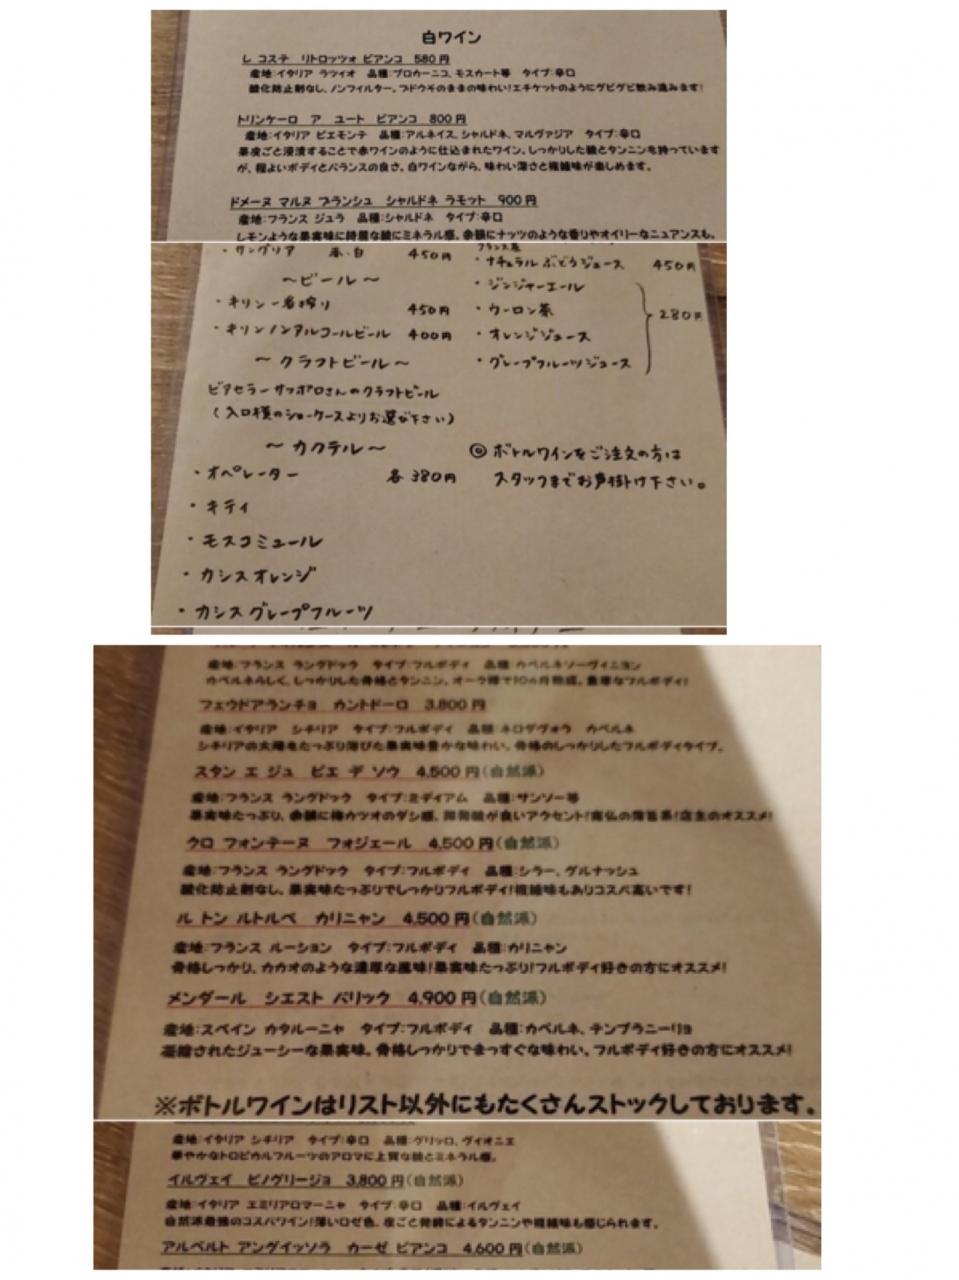 白ワイン
レ コステ リトロッツォ ビアンコ 580円
産地:イタリア ラツィオ 品種:プロカーニコ、モスカート等 タイプ:辛口
酸化防止剤なし、ノンフィルター、ブドウそのままの味わい!エチケットのようにグビグビ飲み進みます!
トリンケーロ ア ユート ビアンコ 800円
産地:イタリア ピエモンテ 品種:アルネイス、シャルドネ、マルヴァジア タイプ:辛口
果皮ごと浸漬することで赤ワインのように仕込まれたワイン。しっかりした酸とタンニンを持っています
が、程よいボディとバランスの良さ。白ワインながら、味わい深さと複雑味が楽しめます。
ドメーヌ マルヌ ブランシュ シャルドネ ラモット 900円
産地:フランス ジュラ 品種:シャルドネ タイプ:辛口
レモンような果実味に綺麗な酸にミネラル感。余韻にナッツのような香りやオイリーなニュアンスも。
・サングリア 赤・白 450円
~ビール~
・キリン一番搾り 450円
・キリンノンアルコールビール 400円
~クラフトビール~
ビアセラーサッポロさんのクラフトビール
(入口横のショーケースよりお選び下さい)
~カクテル~
・オペレーター 各380円
・キティ
・モスコミュール
・カシスオレンジ
・カシスグレープフルーツ
フランス産
・ナチュラルぶどうジュース 450円
・ジンジャーエール
・ウーロン茶 280円
・オレンジジュース
・グレープフルーツジュース
◎ボトルワインをご注文の方は
スタッフまでお声掛け下さい。
産地:フランス ラングドック タイプ:フルボディ 品種:カベルネソーヴィニヨン
カベルネらしく、しっかりした骨格とタンニン、オーク樽で10ヵ月熟成。豊厚なフルボディ!
フェウドアランチョ カントドーロ 3,800円
産地:イタリア シチリア タイプ:フルボディ 品種:ネロダヴォラ カベルネ
シチリアの太陽をたっぷり浴びた果実味豊かな味わい。骨格のしっかりしたフルボディタイプ。
スタン エ ジュ ピエ デ ソウ 4,500円(自然派)
産地:フランス ラングドック タイプ:ミディアム 品種:サンソー等
果実味たっぷり、余韻に梅カツオのダシ感、揮発酸が良いアクセント!南仏の薄旨系!店主のオススメ!
クロ フォンテーヌ フォジェール 4,500円(自然派)
産地:フランス ラングドック タイプ:フルボディ 品種:シラー、グルナッシュ
酸化防止剤なし、果実味たっぷりでしっかりフルボディ!複雑味もありコスパ高いです!
ル トン ルトルベ カリニャン 4,500円(自然派)
産地:フランス ルーション タイプ:フルボディ 品種:カリニャン
骨格しっかり、カカオのような濃厚な風味!果実味たっぷり!フルボディ好きの方にオススメ!
メンダール シエスト バリック 4,900円(自然派)
産地:スペイン カタルーニャ タイプ:フルボディ 品種:カベルネ、テンプラニーリョ
凝縮されたジューシーな果実味。骨格しっかりでまっすぐな味わい。フルボディ好きの方にオススメ!
※ボトルワインはリスト以外にもたくさんストックしております。
産地:イタリア シチリア タイプ:辛口 品種:グリッロ、ヴィオニエ
華やかなトロピカルフルーツのアロマに上質な酸とミネラル感。
イルヴェイ ピノグリージョ 3,800円(自然派)
産地:イタリア エミリアロマーニャ タイプ:辛口 品種:イルヴェイ
自然派最強のコスパワイン!薄いロゼ色、皮ごと発酵によるタンニンや複雑味も感じられます。
アルベルト アングイッソラ カーゼ ビアンコ 4,600円(自然派)